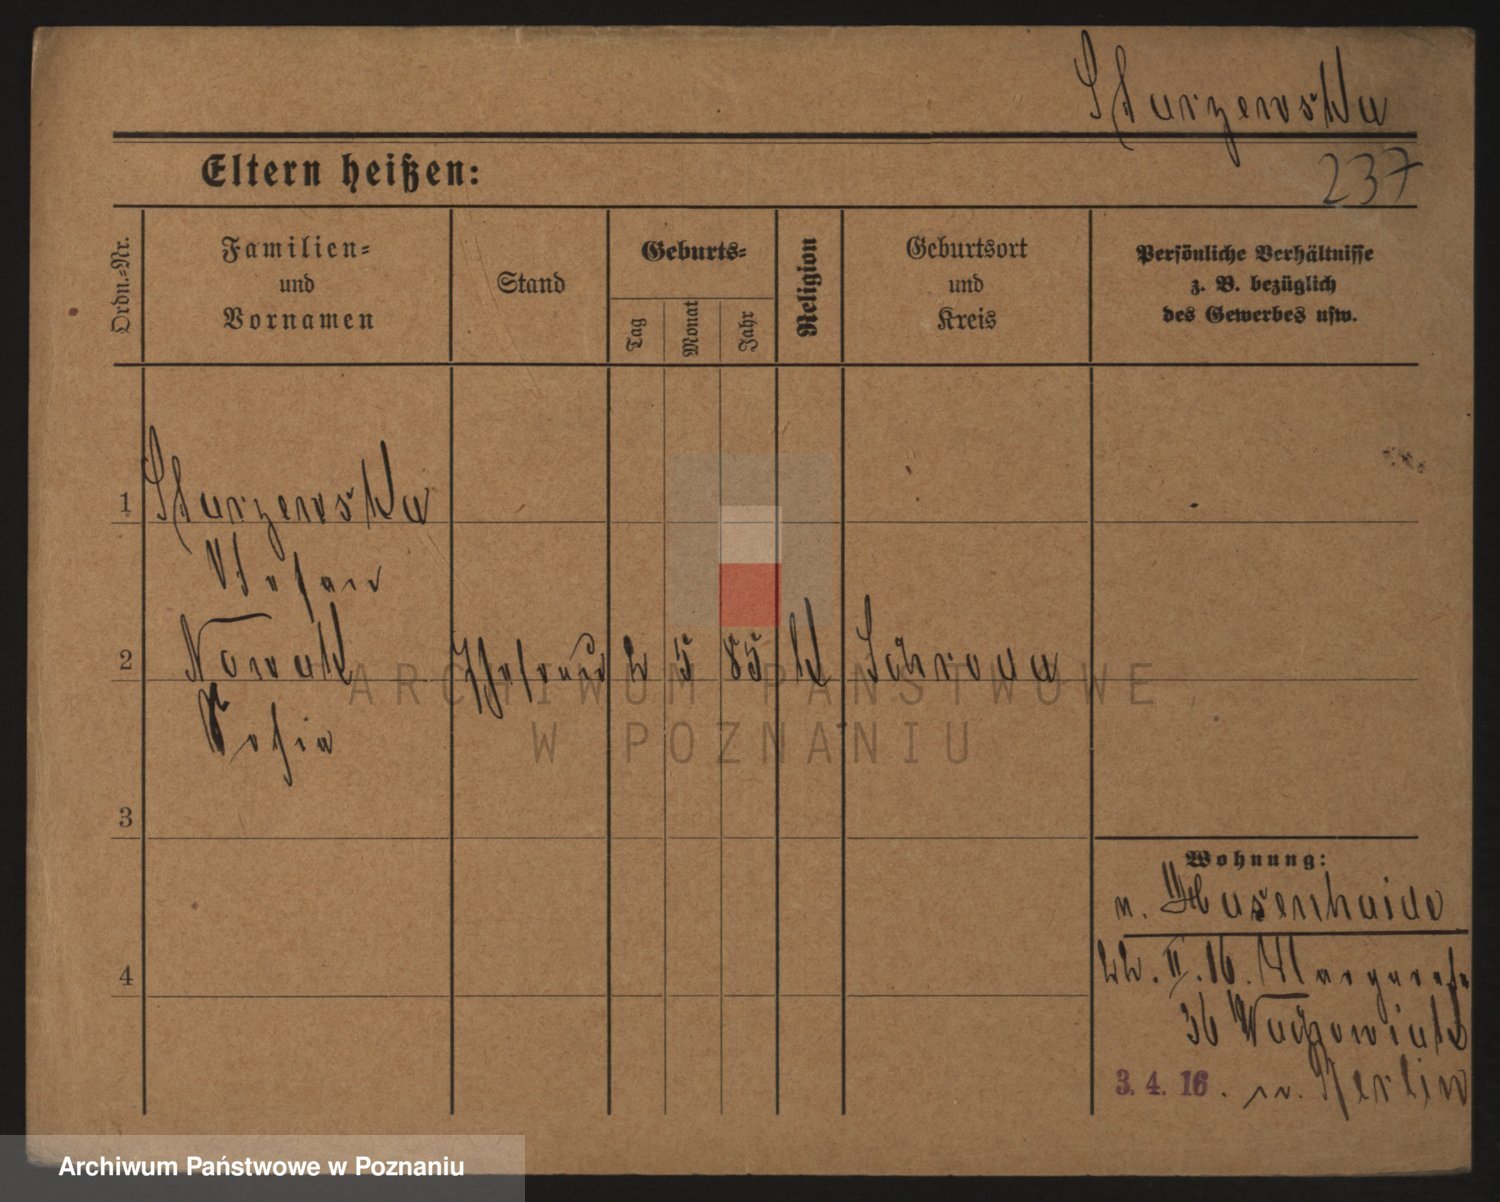 Skurzewska
237
Eltern heißen:
Ordn.-Nr.
Familien-
und
Vornamen
Stand
Geburts-
Tag
Monat
Jahr
Religion
Geburtsort
und
Kreis
Persönliche Verhältnisse
z. B. bezüglich
des Gewerbes usw.
1
Skurzewska
Stefan
2
Nowak
Ehefrau
2 5 85
K
Schroda
Sofia
3
4
Wohnung:
n. Hasenhaide
22. II. 16. Margareth
36 Wachowiak
3. 4. 16. n. Berlin
ARCHIWUM PAŃSTWOWE
W POZNANIU
Archiwum Państwowe w Poznaniu